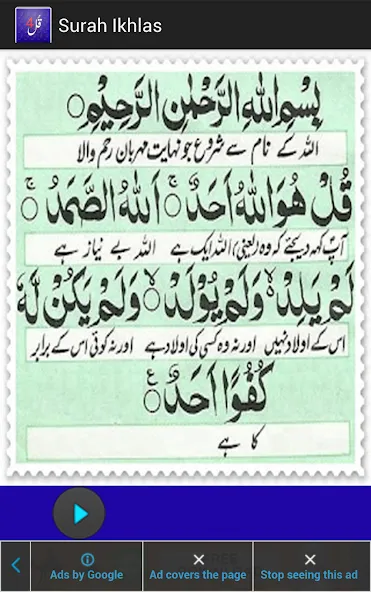 Surah Ikhlas
بِسْمِ اللهِ الرَّحْمٰنِ الرَّحِيْمِ ○
اللہ کے نام سے شروع جو نہایت مہربان رحم والا
قُلْ هُوَ اللهُ اَحَدٌ ۚ○ اَللهُ الصَّمَدُ ۚ○
آپ کہہ دیجئے کہ وہ (یعنی) اللہ ایک ہے اللہ بے نیاز ہے
لَمْ يَلِدْ ۙ○ وَلَمْ يُوْلَدْ ۙ○ وَلَمْ يَكُنْ لَّهٗ
اس کے اولاد نہیں اور نہ وہ کسی کی اولاد ہے اور نہ کوئی اس کے برابر
كُفُوًا اَحَدٌ ○ع
کا ہے
Ads by Google
Ad covers the page
Stop seeing this ad